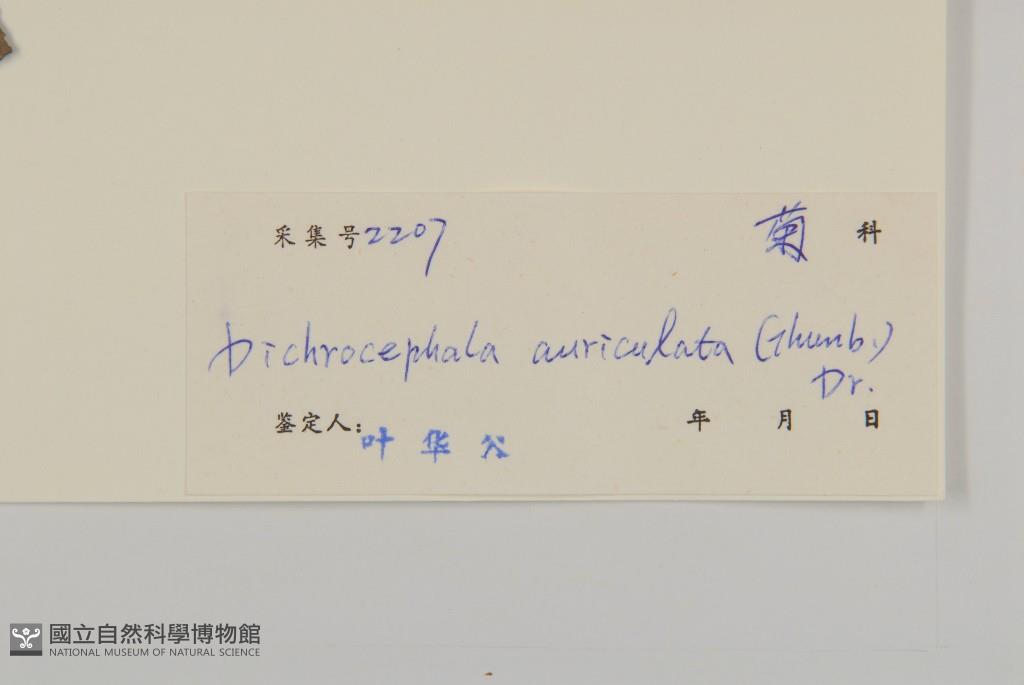 采集号2207 菊科
Dichrocephala auriculata (Thunb.)
Dr.
鉴定人: 叶华谷 年 月 日
國立自然科學博物館
NATIONAL MUSEUM OF NATURAL SCIENCE